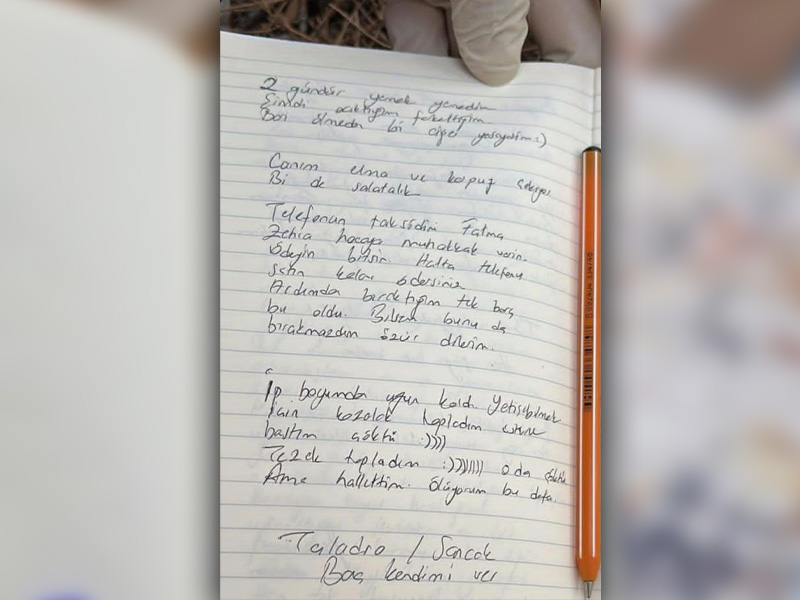 2 gündür yemek yemedim
Şimdi acıktığım farkettiğim
Bari ölmeden bi ciğer yeseydim :)
Canım elma ve karpuz çekiyor
Bi de salatalık
Telefonun taksidini Fatma
Zehra hocaya muhakkak verin.
Ödeyin bitsin. Hatta telefonu
satın kalanı ödersiniz
Ardımda bıraktığım tek borç
bu oldu. Bilsem bunu da
bırakmazdım özür dilerim.
İp boyumdan uzun kaldı. Yetişebilmek
için kozalak topladım üstüne
bastım çöktü :))))
Tezek topladım :))))))) o da çöktü
Ama hallettim. Ölüyorum bu defa.
Taladro / Sancak
Baş kendimi ver